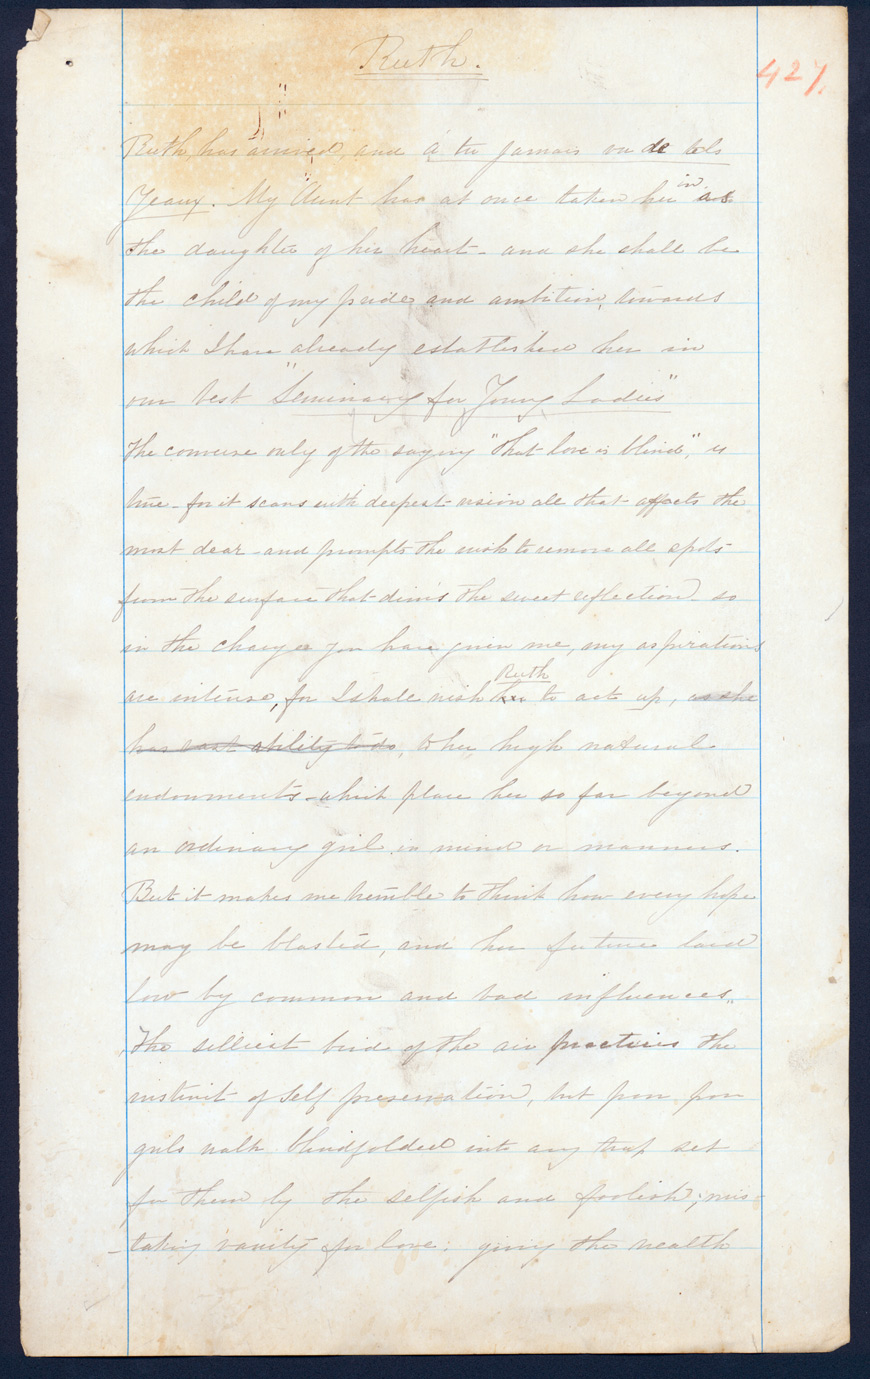 Ruth.
427.
Ruth has arrived, and a tu jamais vu de tels
Yeaux. My Aunt has at once taken her in as
the daughter of her heart - and she shall be
the child of my pride and ambition, towards
which I have already established her in
our best "Seminary for Young Ladies"
The converse only of the saying "that love is blind", is
true - for it scans with deepest vision all that affects the
most dear - and prompts the wish to remove all spots
from the surface that dims the sweet reflection - so
in the charge you have given me, my aspirations
are intense, for I shall wish her Ruth to act up, as she
has vast ability to do, to her high natural
endowments - which place her so far beyond
an ordinary girl in mind or manners.
But it makes me tremble to think how every hope
may be blasted, and her future laid
low by common and bad influences.
The silliest bird of the air practices the
instinct of self preservation, but poor poor
girls walk blindfolded into any trap set
for them by the selfish and foolish; mis-
-taking vanity for love. giving the wealth